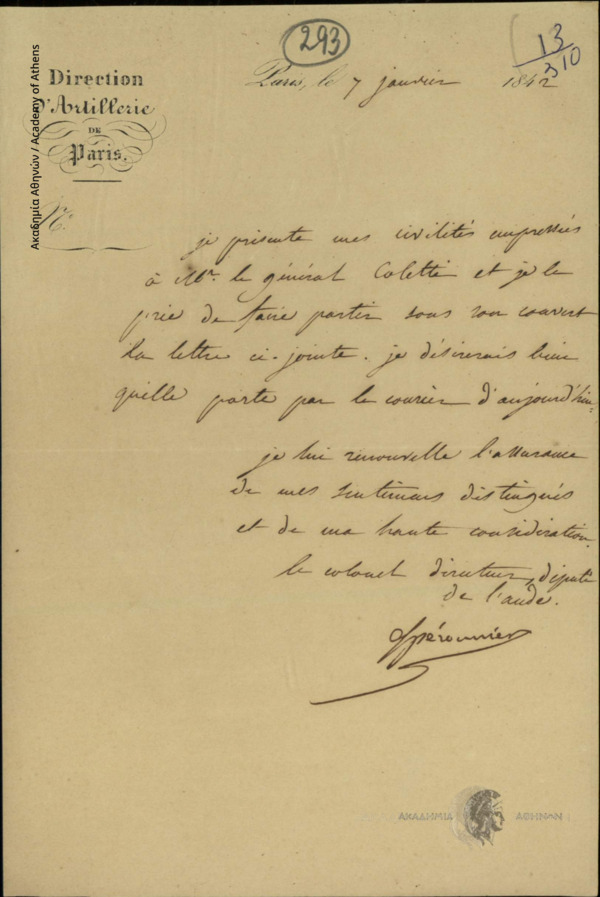 293
13
310
Direction
d'Artillerie
DE
Paris.
Paris, le 7 janvier 1842
N.º
je présente mes civilités empressées
à Mr. le général Coletti et je le
prie de faire partir sous son couvert
la lettre ci-jointe. je désirerais bien
quelle parte par le courier d'aujourd'hui.
je lui renouvelle l'assurance
de mes sentimens distingués
et de ma haute considération.
le colonel directeur, député
de l'aude.
Espéronnier
Ακαδημία Αθηνών / Academy of Athens
ΑΚΑΔΗΜΙΑ ΑΘΗΝΩΝ